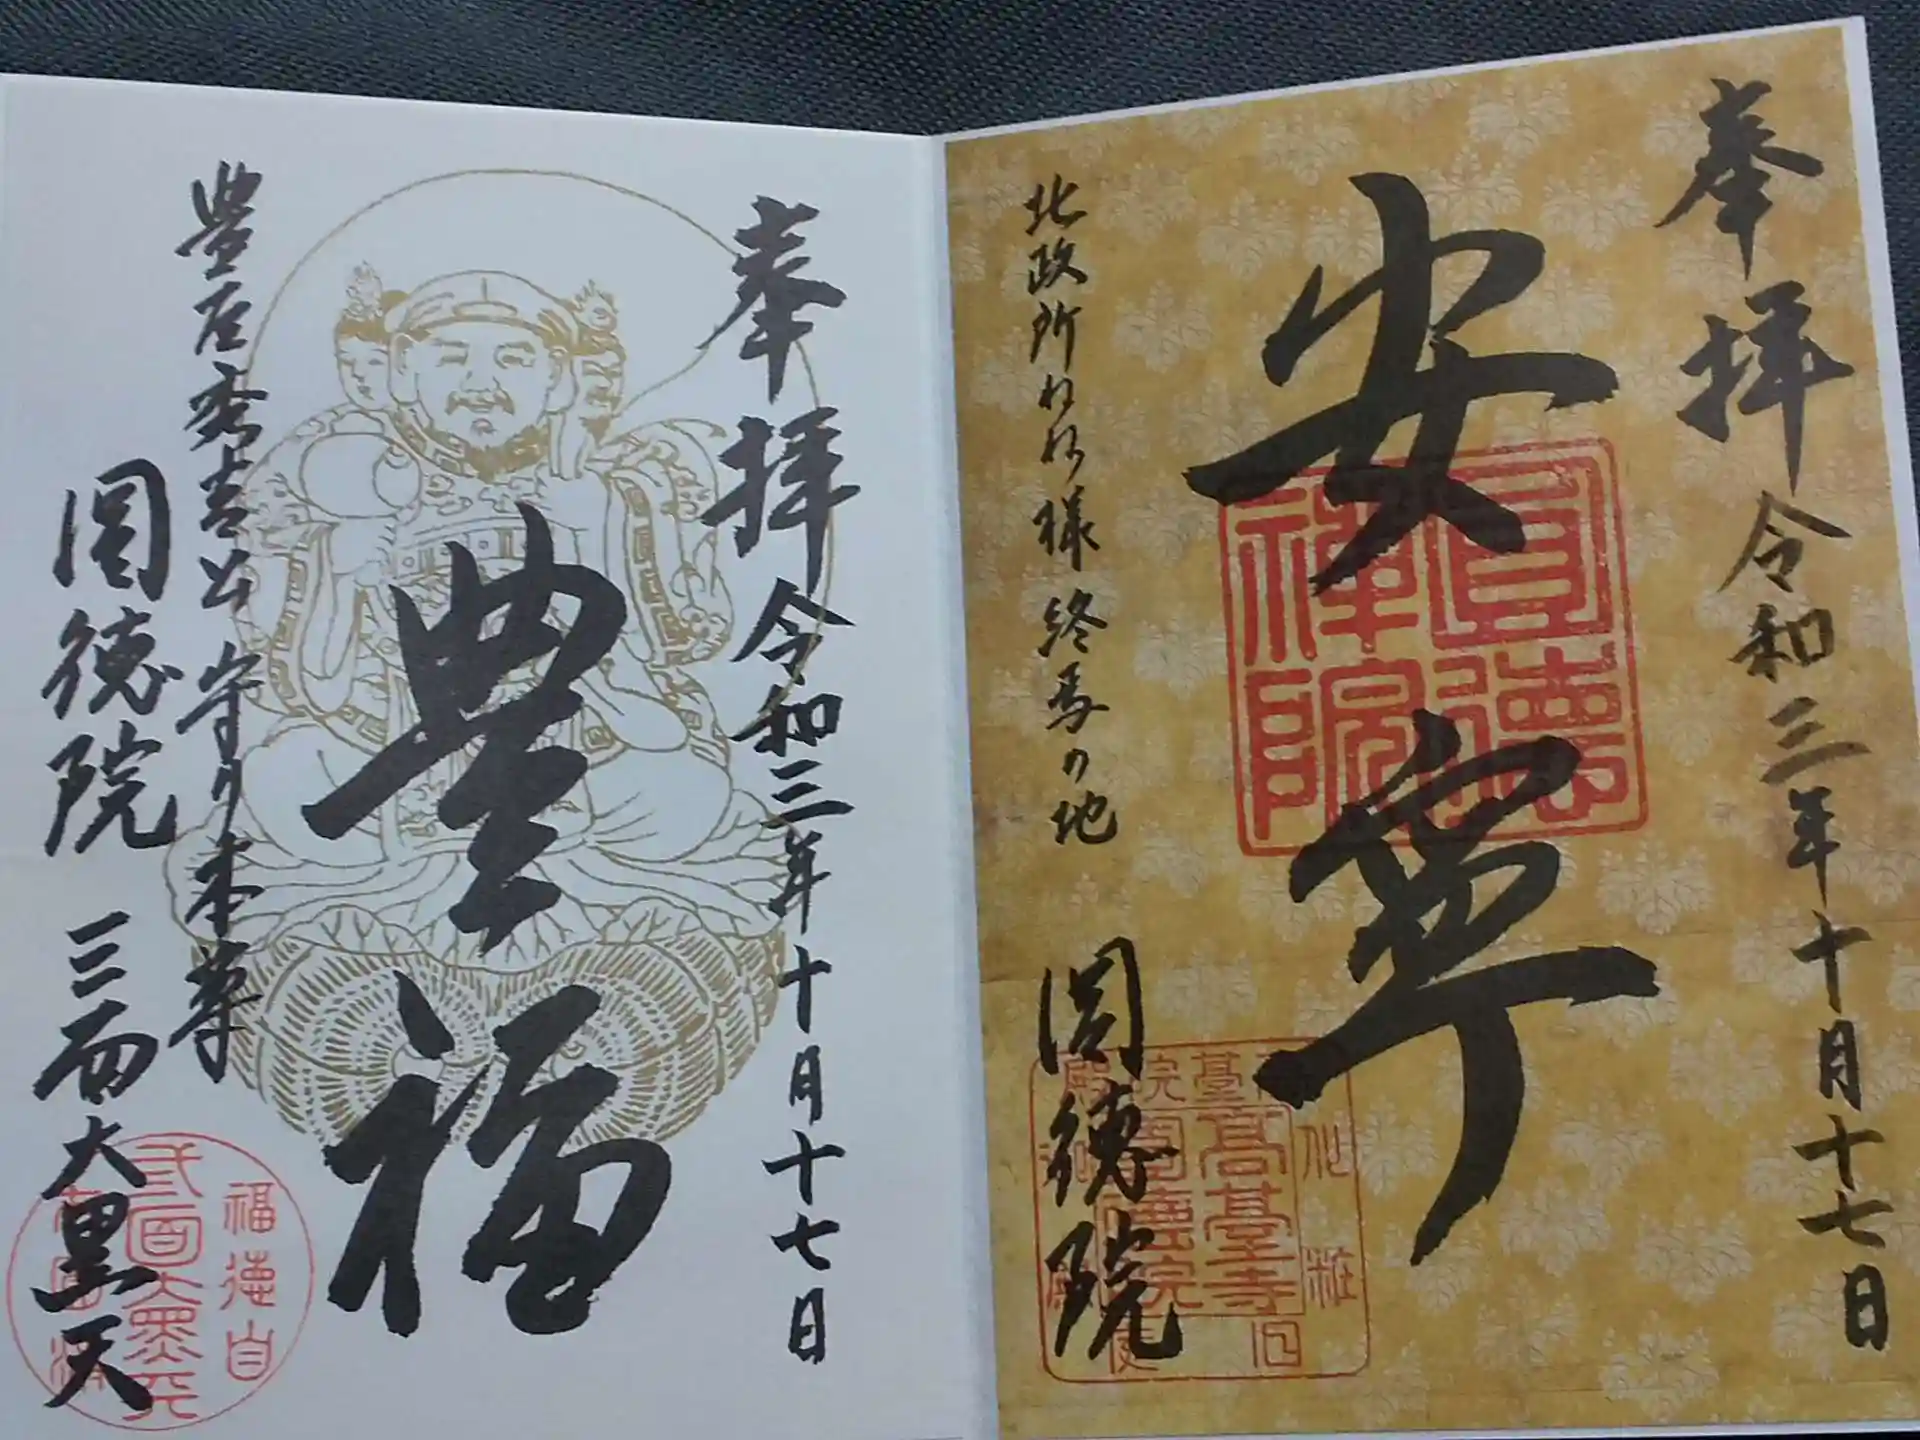 奉拝 令和三年十月十七日
安寧
北政所ねね様終焉の地
圓徳院
圓徳禅院
奉拝 令和三年十月十七日
豊福
豊臣秀吉公 守り本尊
圓徳院 三面大黒天
福徳自